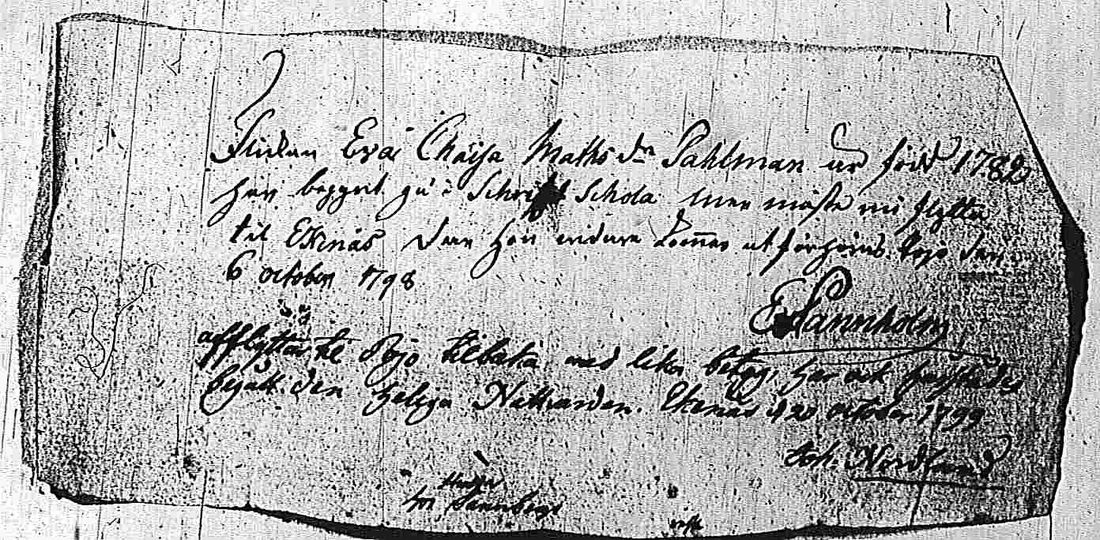 Flickan Eva Chaisa Mathsdr Pahlman är född 1782
har begynt gå i Schrift Schola men måste nu flytta
til Ekenäs der hon vidare kommer at förhöras. Pojo den
6 october 1798
E Fannholm
afflyttar til Pojo tilbaka med lika betyg, har ock härstädes
begått den heliga Nattvarden. Ekenäs d 20 october 1799
Joh. Nordlund